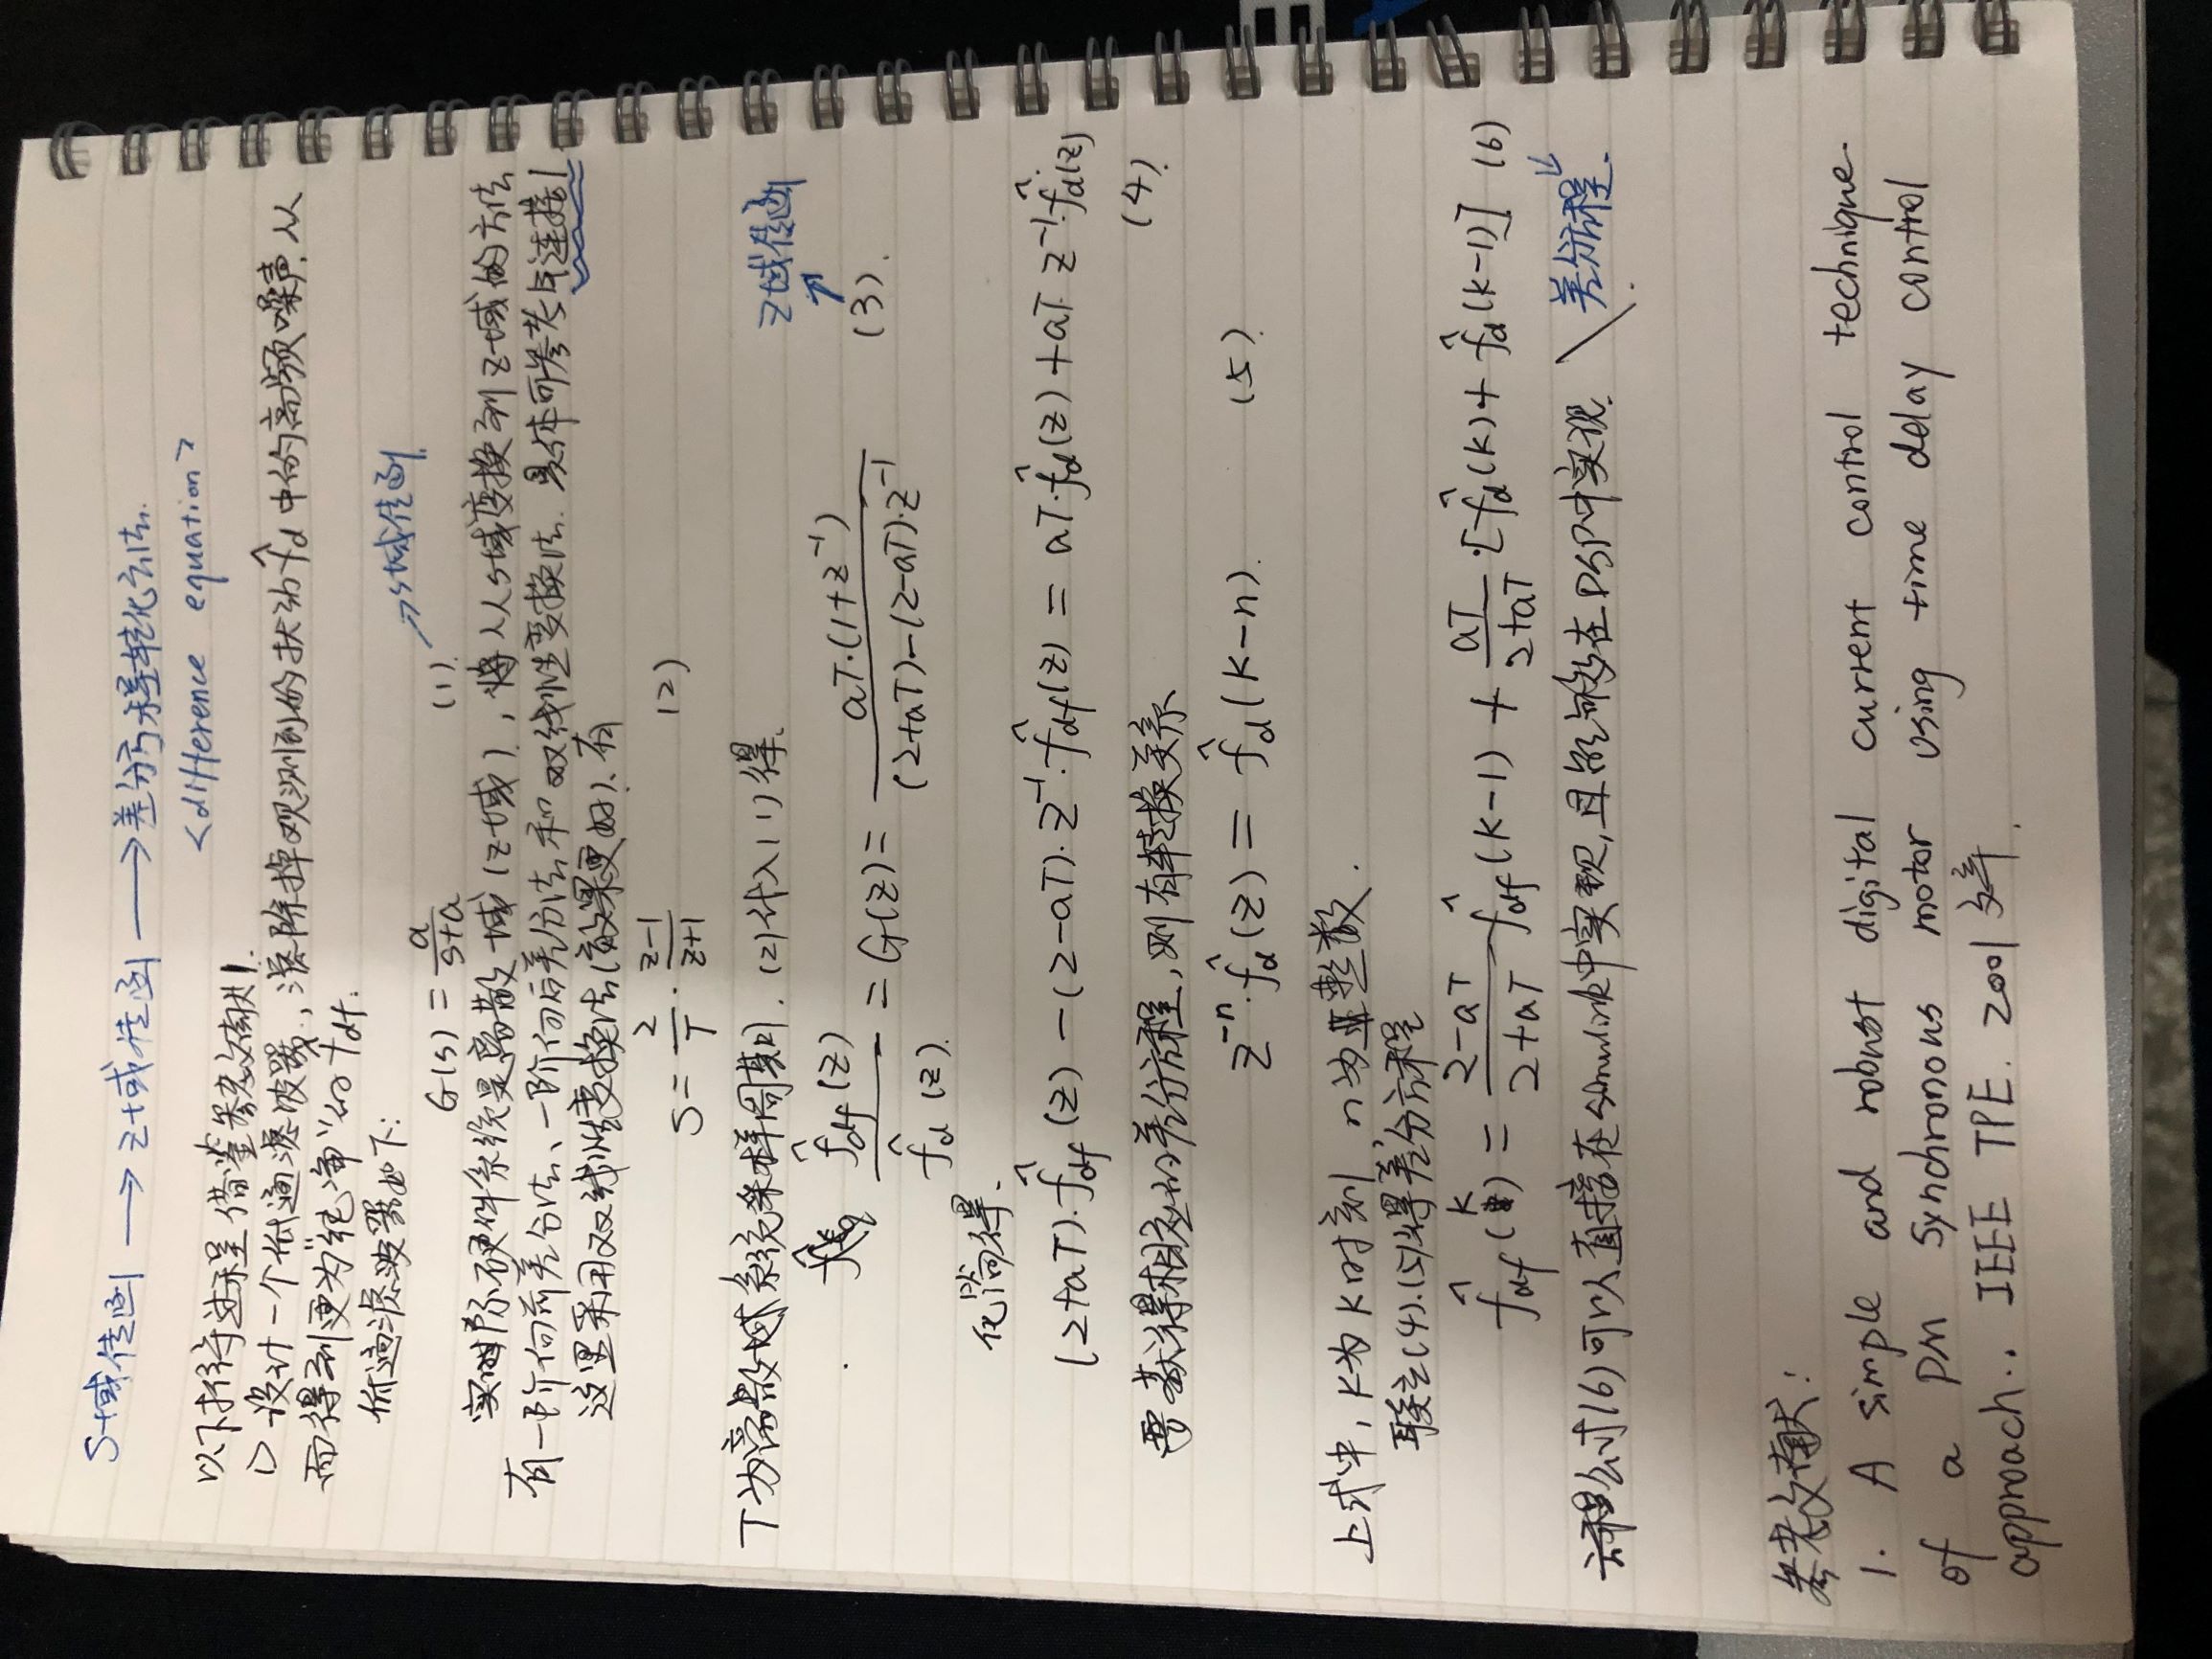 S域传函 → z域传函 → 差分方程转化方法.
<difference equation>
以下推得过程借鉴参考文献1.
1) 设计一个低通滤波器,滤除掉观测到的扰动f̂d中的高频噪声,从
而得到更为"纯净"的f̂df.
低通滤波器如下:
G(s) = a/(s+a) (1). → s域传函.
实际硬件系统是离散域(z域),将从s域变换到z域的方法
有一阶向前差分法、一阶向后差分法和双线性变换法.具体可参考链接1
这里采用双线性变换法(效果更好).有
S = 2/T · (z-1)/(z+1) (2)
T为离散域系统采样周期.(2)代入(1)得.
z域传函
f̂df(z)/f̂d(z) = G(z) = aT·(1+z⁻¹)/((2+aT)-(2-aT)·z⁻¹) (3).
化简得.
(2+aT)·f̂df(z) - (2-aT)·z⁻¹·f̂df(z) = aT·f̂d(z) + aT·z⁻¹·f̂d(z)
(4).
要获得相应的差分方程,则有转换关系
z⁻ⁿ·f̂d(z) = f̂d(k-n). (5).
上式中,k为k时刻,n为正整数.
联立(4).(5)得差分方程
f̂df(k) = (2-aT)/(2+aT) f̂df(k-1) + aT/(2+aT)·[f̂d(k) + f̂d(k-1)] (6)
方程公式(6)可以直接在simulink中实现,且能够在DSP中实现. 差分方程.
参考文献:
1. A simple and robust digital current control technique
of a PM Synchronous motor using time delay control
approach.. IEEE TPE. 2001年.